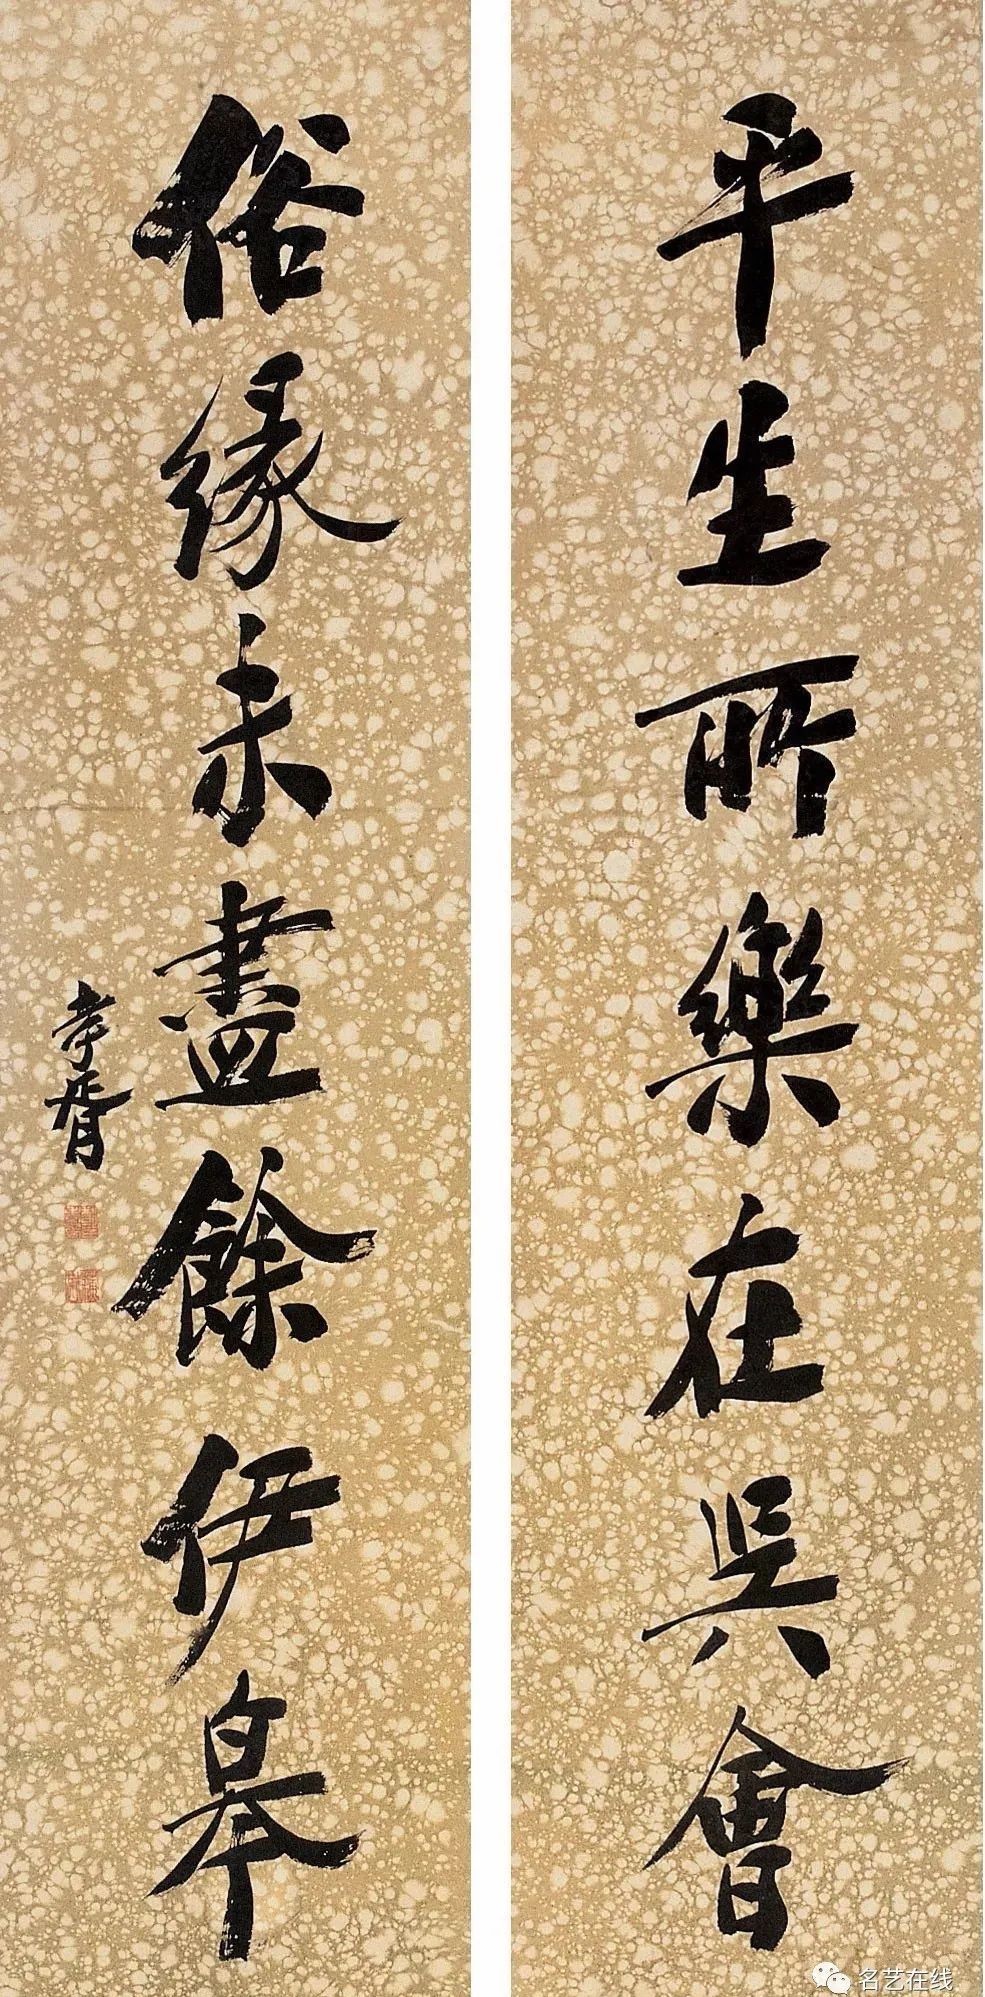 平生所樂在吳會
俗緣未盡餘伊皋
孝胥
名艺在线